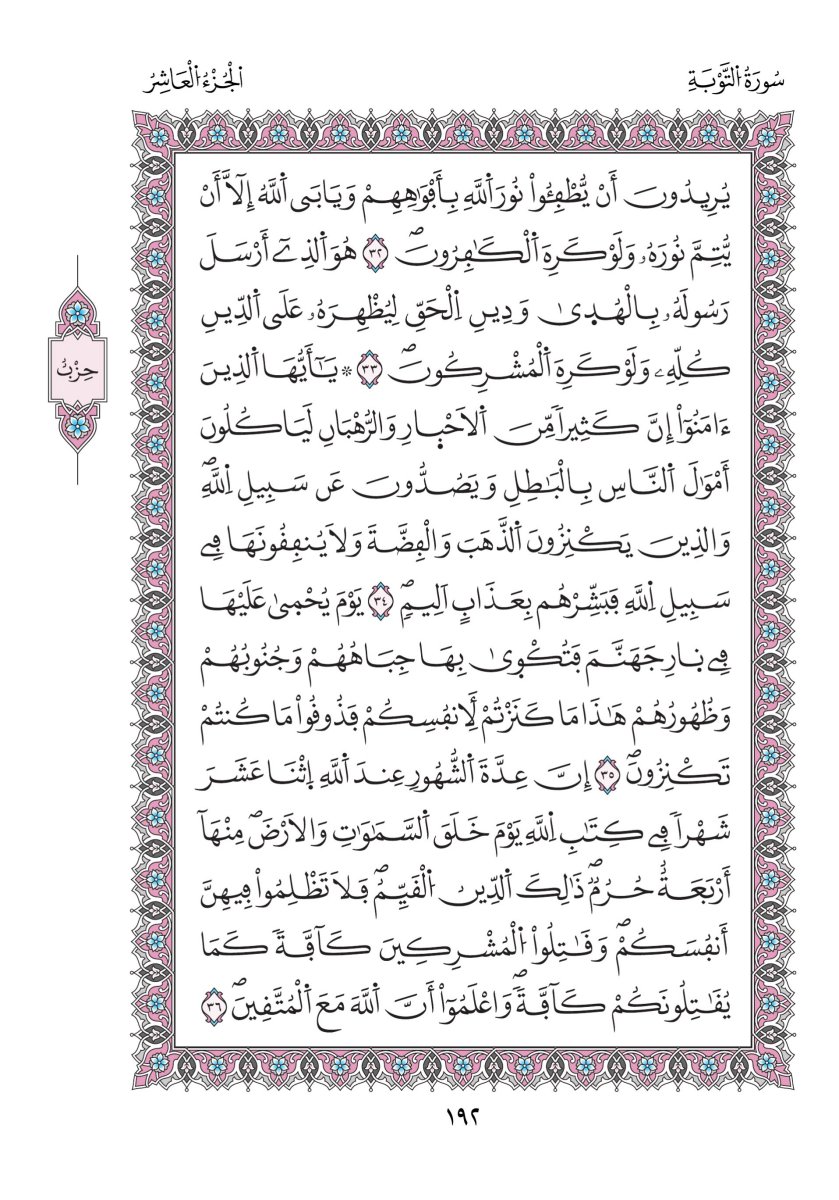 سُورَةُ التَّوْبَةِ
الْجُزْءُ الْعَاشِرُ
يُرِيدُونَ أَنْ يُّطْفِـُٔواْ نُورَ اَ۬للَّهِ بِأَفْوَٰهِهِمْ وَيَابَى اَ۬للَّهُ إِلَّآ أَنْ
يُّتِمَّ نُورَهُۥ وَلَوْ كَرِهَ اَ۬لْكَٰفِرُونَۖ ٣٢ هُوَ اَ۬لذِےٓ أَرْسَلَ
رَسُولَهُۥ بِالْهُدۭيٰ وَدِينِ اِ۬لْحَقِّ لِيُظْهِرَهُۥ عَلَى اَ۬لدِّينِ
كُلِّهِۦ وَلَوْ كَرِهَ اَ۬لْمُشْرِكُونَۖ ٣٣ ۞ يَٰٓأَيُّهَا اَ۬لذِينَ
ءَامَنُوٓاْ إِنَّ كَثِيراٗ مِّنَ اَ۬لَاحْبۭارِ وَالرُّهْبَانِ لَيَاكُلُونَ
أَمْوَٰلَ اَ۬لنَّاسِ بِالْبَٰطِلِ وَيَصُدُّونَ عَن سَبِيلِ اِ۬للَّهِۖ
وَالذِينَ يَكْنِزُونَ اَ۬لذَّهَبَ وَالْفِضَّةَ وَلَا يُنفِقُونَهَا فِے
سَبِيلِ اِ۬للَّهِ فَبَشِّرْهُم بِعَذَابٍ اَلِيمٖۖ ٣٤ يَوْمَ يُحْمۭيٰ عَلَيْهَا
فِے نۭارِ جَهَنَّمَ فَتُكْوۭيٰ بِهَا جِبَاهُهُمْ وَجُنُوبُهُمْ
وَظُهُورُهُمْ هَٰذَا مَا كَنَزْتُمْ لِأَنفُسِكُمْ فَذُوقُواْ مَا كُنتُمْ
تَكْنِزُونَۖ ٣٥ إِنَّ عِدَّةَ اَ۬لشُّهُورِ عِندَ اَ۬للَّهِ اِ۪ثْنَا عَشَرَ
شَهْراٗ فِے كِتَٰبِ اِ۬للَّهِ يَوْمَ خَلَقَ اَ۬لسَّمَٰوَٰتِ وَالَارْضَۖ مِنْهَآ
أَرْبَعَةٌ حُرُمٞۖ ذَٰلِكَ اَ۬لدِّينُ اُ۬لْقَيِّمُۖ فَلَا تَظْلِمُواْ فِيهِنَّ
أَنفُسَكُمْۖ وَقَٰتِلُواْ اُ۬لْمُشْرِكِينَ كَآفَّةٗ كَمَا
يُقَٰتِلُونَكُمْ كَآفَّةٗۖ وَاعْلَمُوٓاْ أَنَّ اَ۬للَّهَ مَعَ اَ۬لْمُتَّقِينَۖ ٣٦
حِزْبٌ
١٩٢